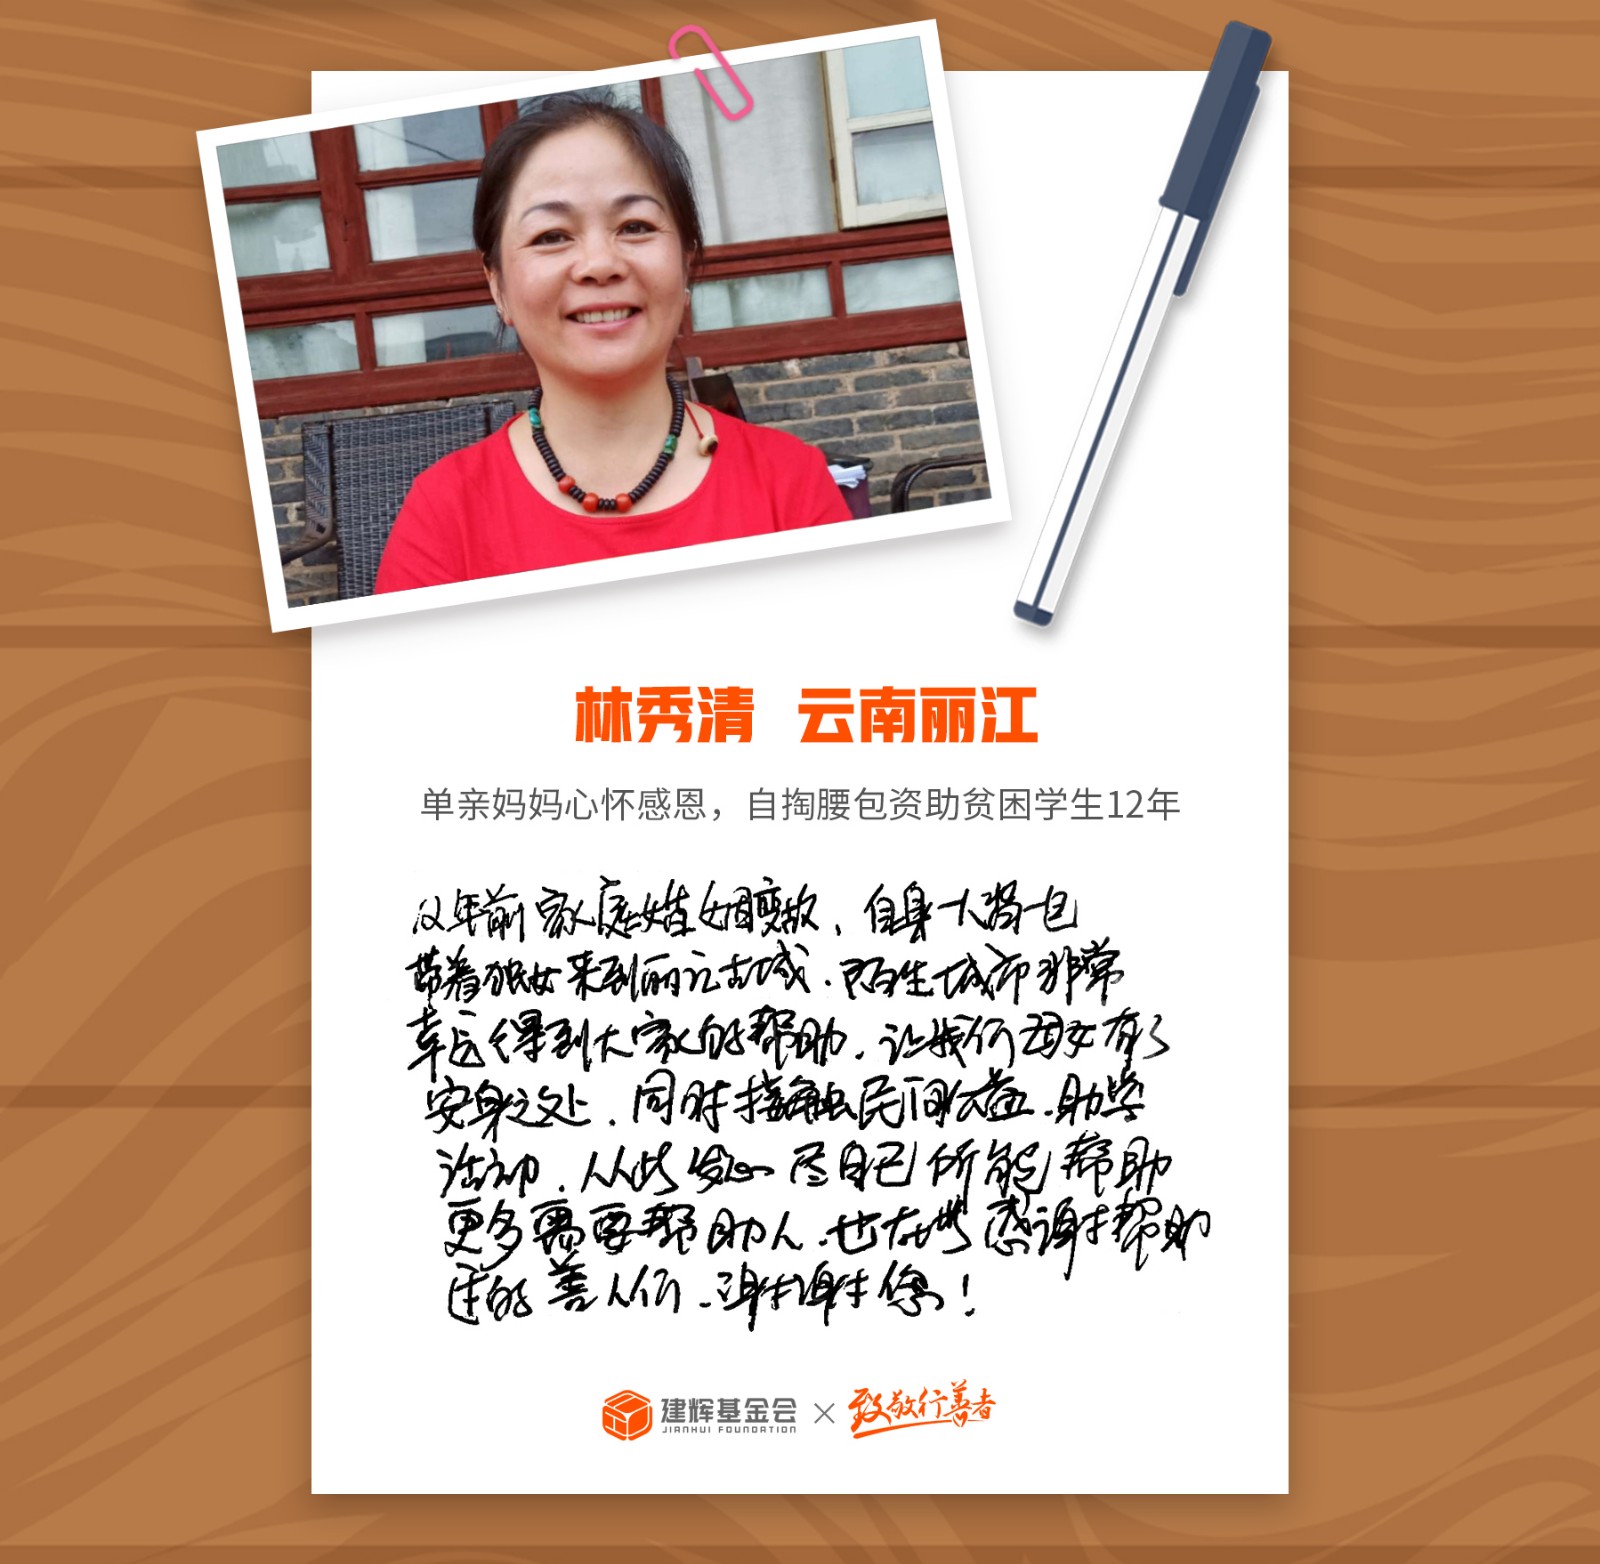 林秀清 云南丽江
单亲妈妈心怀感恩，自掏腰包资助贫困学生12年
年前家庭婚姻变故，自身一人背包
带着独女来到丽江古城．陌生城市非常
幸运得到大家的帮助．让我们母女有了
安身之处．同时接触民间公益．助学
活动．从此发心尽自己所能帮助
更多需要帮助人．也在此感谢帮助
过的善人们．谢谢您！
建辉基金会 × 致敬行善者
JIANHUI FOUNDATION